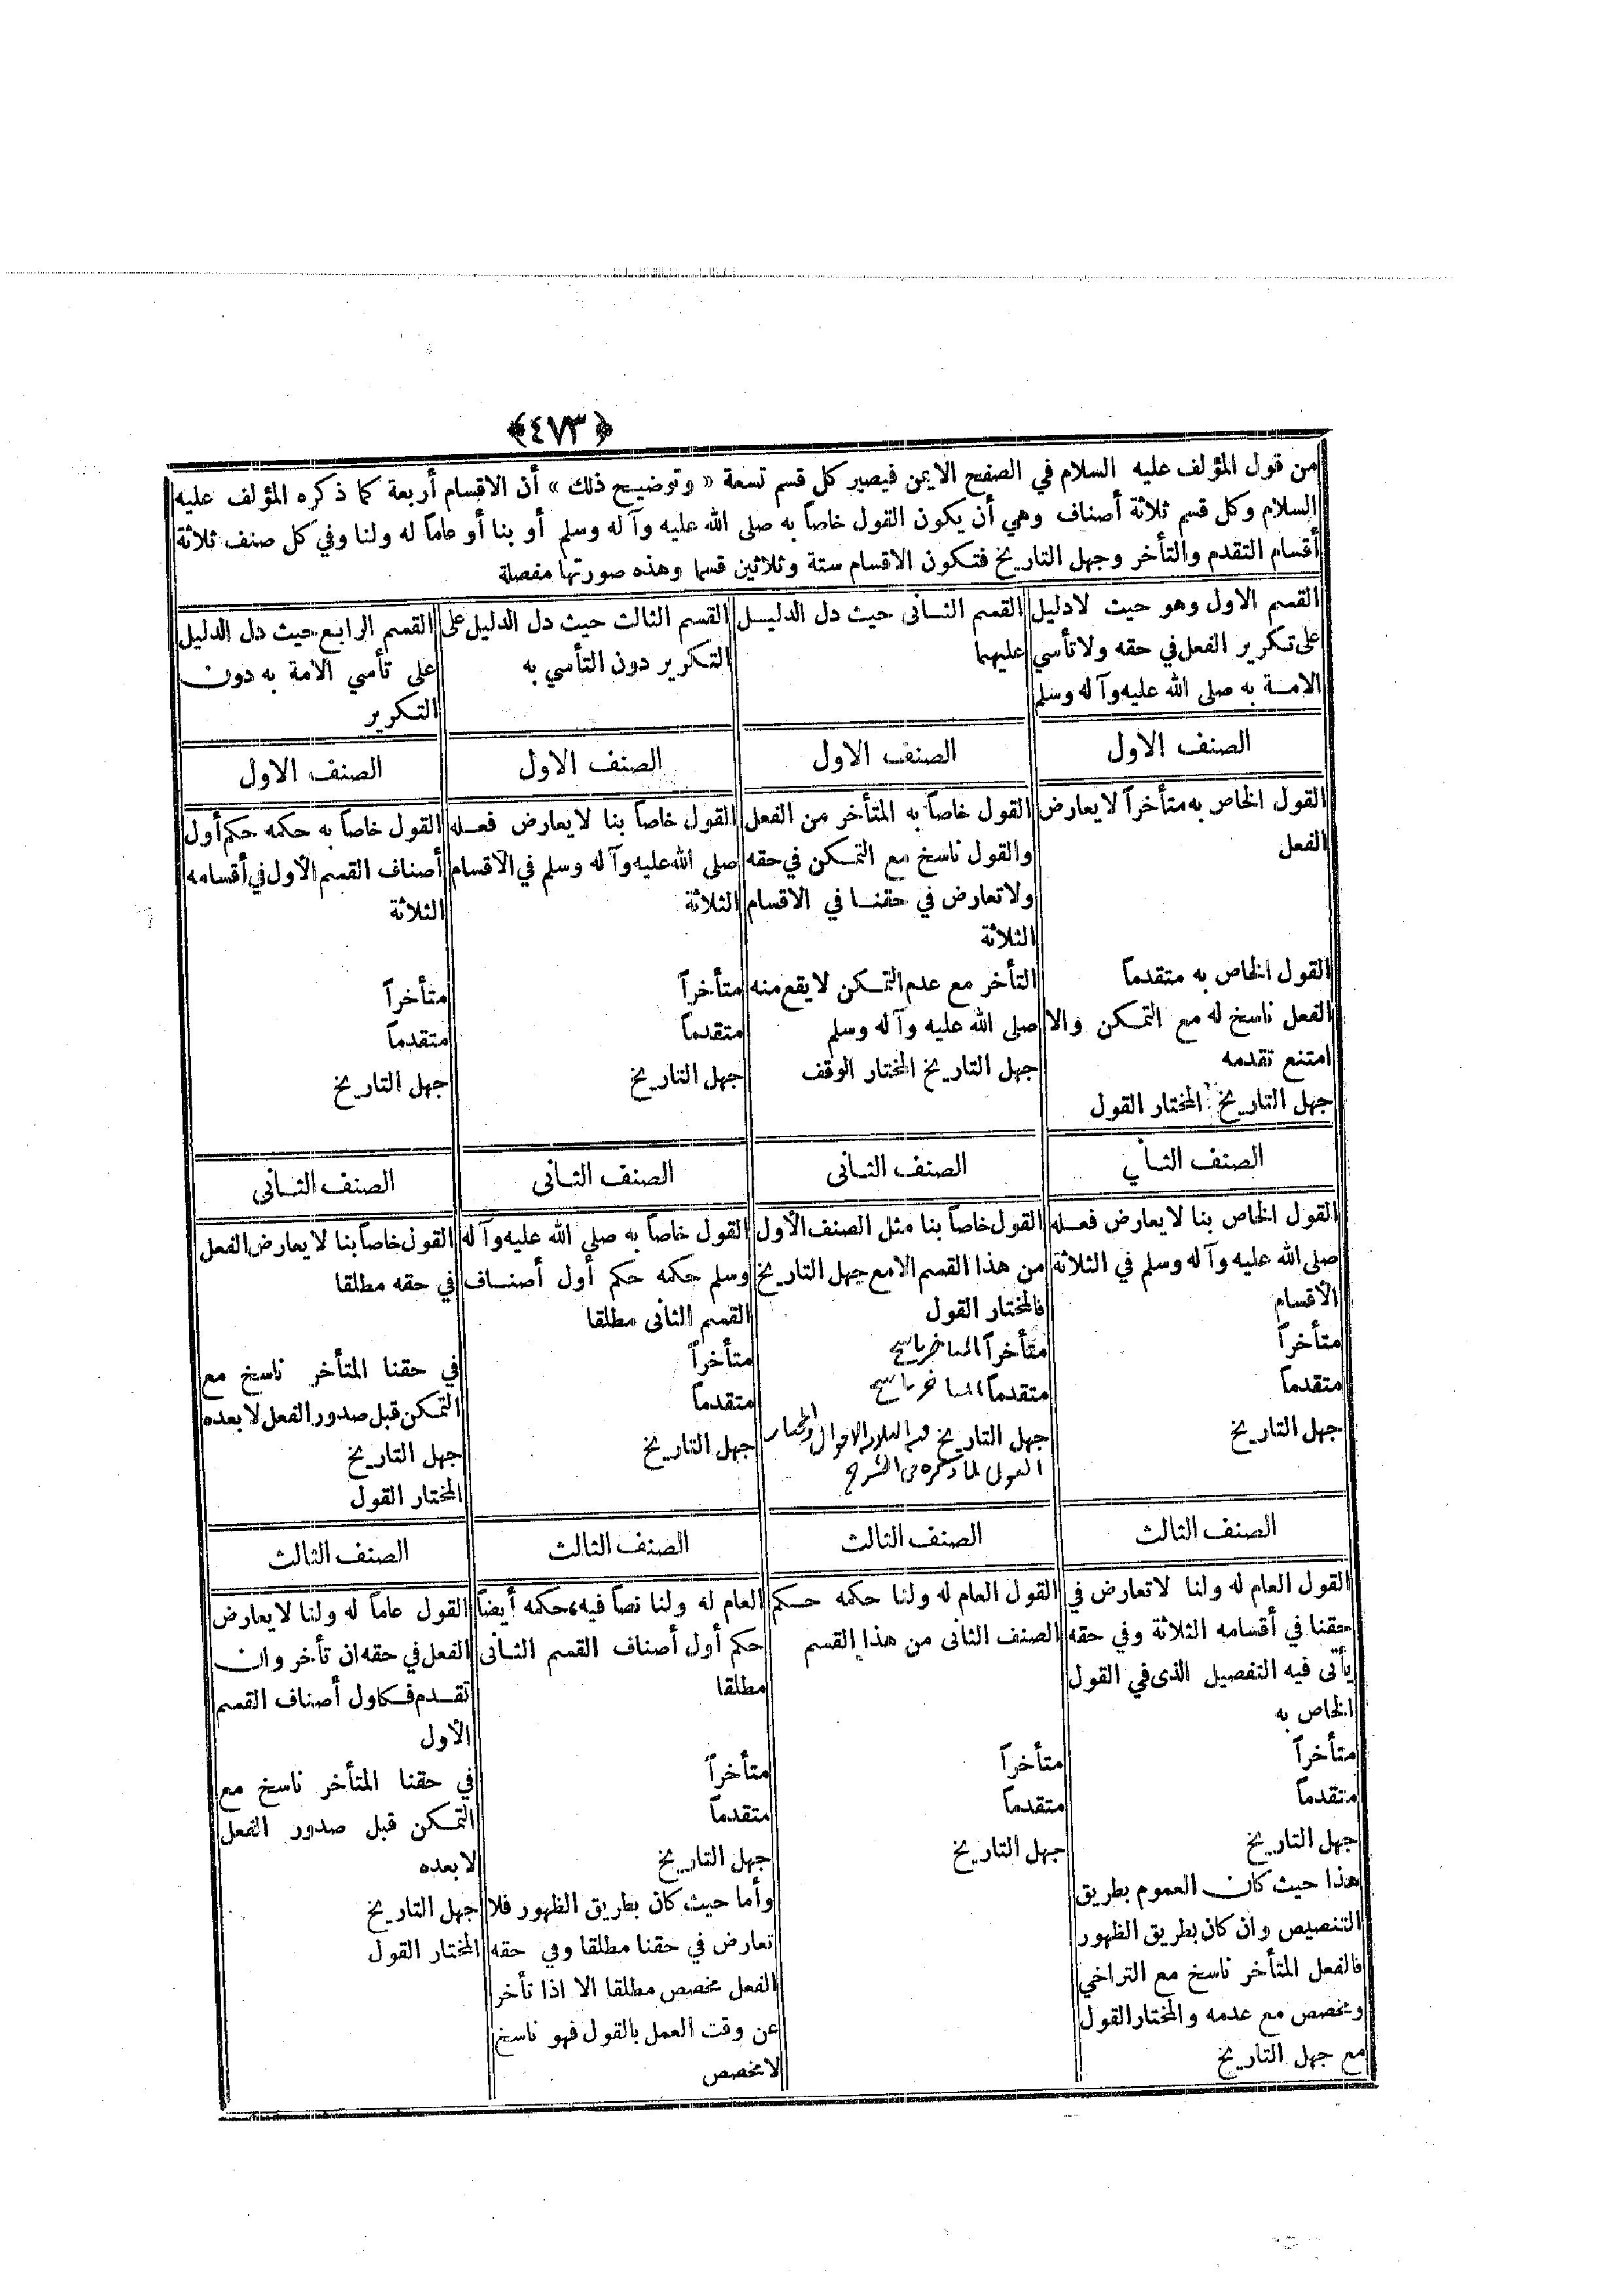 ﴿٤٧٣﴾
من قول المؤلف عليه السلام في الصفح الايمن فيصير كل قسم تسعة « وتوضيح ذلك » أن الاقسام أربعة كما ذكره المؤلف عليه
السلام وكل قسم ثلاثة أصناف وهي أن يكون القول خاصاً به صلى الله عليه وآله وسلم أو بنا أو عاماً له ولنا وفي كل صنف ثلاثة
أقسام التقدم والتأخر وجهل التاريخ فتكون الاقسام ستة وثلاثين قسما وهذه صورتها مفصلة
القسم الاول وهو حيث لادليل
على تكرير الفعل في حقه ولا تأسي
الامة به صلى الله عليه وآله وسلم
القسم الثانى حيث دل الدليل
عليهما
القسم الثالث حيث دل الدليل على
التكرير دون التأسي به
القسم الرابع حيث دل الدليل
على تأسي الامة به دون
التكرير
الصنف الاول
الصنف الاول
الصنف الاول
الصنف الاول
القول الخاص به متأخراً لا يعارض
الفعل
القول الخاص به متقدماً
الفعل ناسخ له مع التمكن والا
امتنع تقدمه
جهل التاريخ المختار القول
القول خاصاً به المتأخر من الفعل
والقول ناسخ مع التمكن في حقه
ولا تعارض في حقنا في الاقسام
الثلاثة
التأخر مع عدم التمكن لا يقع منه
صلى الله عليه وآله وسلم
جهل التاريخ المختار الوقف
القول خاصاً بنا لا يعارض فعله
صلى الله عليه وآله وسلم في الاقسام
الثلاثة
متأخراً
متقدماً
جهل التاريخ
القول خاصاً به حكمه حكم أول
أصناف القسم الأول في أقسامه
الثلاثة
متأخراً
متقدماً
جهل التاريخ
الصنف الثاني
الصنف الثانى
الصنف الثانى
الصنف الثانى
القول الخاص بنا لا يعارض فعله
صلى الله عليه وآله وسلم في الثلاثة
الأقسام
متأخراً
متقدماً
جهل التاريخ
القول خاصاً بنا مثل الصنف الأول
من هذا القسم الا مع جهل التاريخ
فالمختار القول
متأخراً المتأخر ناسخ
متقدماً المتأخر ناسخ
جهل التاريخ والمختار
القول لما ذكره في الشرح
القول خاصاً به صلى الله عليه وآله
وسلم حكمه حكم أول أصناف
القسم الثانى مطلقا
متأخراً
متقدماً
جهل التاريخ
القول خاصاً بنا لا يعارض الفعل
في حقه مطلقا
في حقنا المتأخر ناسخ مع
التمكن قبل صدور الفعل لا بعده
جهل التاريخ
المختار القول
الصنف الثالث
الصنف الثالث
الصنف الثالث
الصنف الثالث
القول العام له ولنا لا تعارض في
حقنا في أقسامه الثلاثة وفي حقه
يأتى فيه التفصيل الذى في القول
الخاص به
متأخراً
متقدماً
جهل التاريخ
هذا حيث كان العموم بطريق
التنصيص وان كان بطريق الظهور
فالفعل المتأخر ناسخ مع التراخي
ومخصص مع عدمه والمختار القول
مع جهل التاريخ
القول العام له ولنا حكمه حكم
الصنف الثانى من هذا القسم
متأخراً
متقدماً
جهل التاريخ
العام له ولنا نصاً فيه، حكمه أيضاً
حكم أول أصناف القسم الثانى
مطلقا
متأخراً
متقدماً
جهل التاريخ
وأما حيث كان بطريق الظهور فلا
تعارض في حقنا مطلقا وفي حقه
الفعل مخصص مطلقا الا اذا تأخر
عن وقت العمل بالقول فهو ناسخ
لا مخصص
القول عاماً له ولنا لا يعارض
الفعل في حقه ان تأخر وان
تقدم فكاول أصناف القسم
الأول
في حقنا المتأخر ناسخ مع
التمكن قبل صدور الفعل
لا بعده
جهل التاريخ
المختار القول